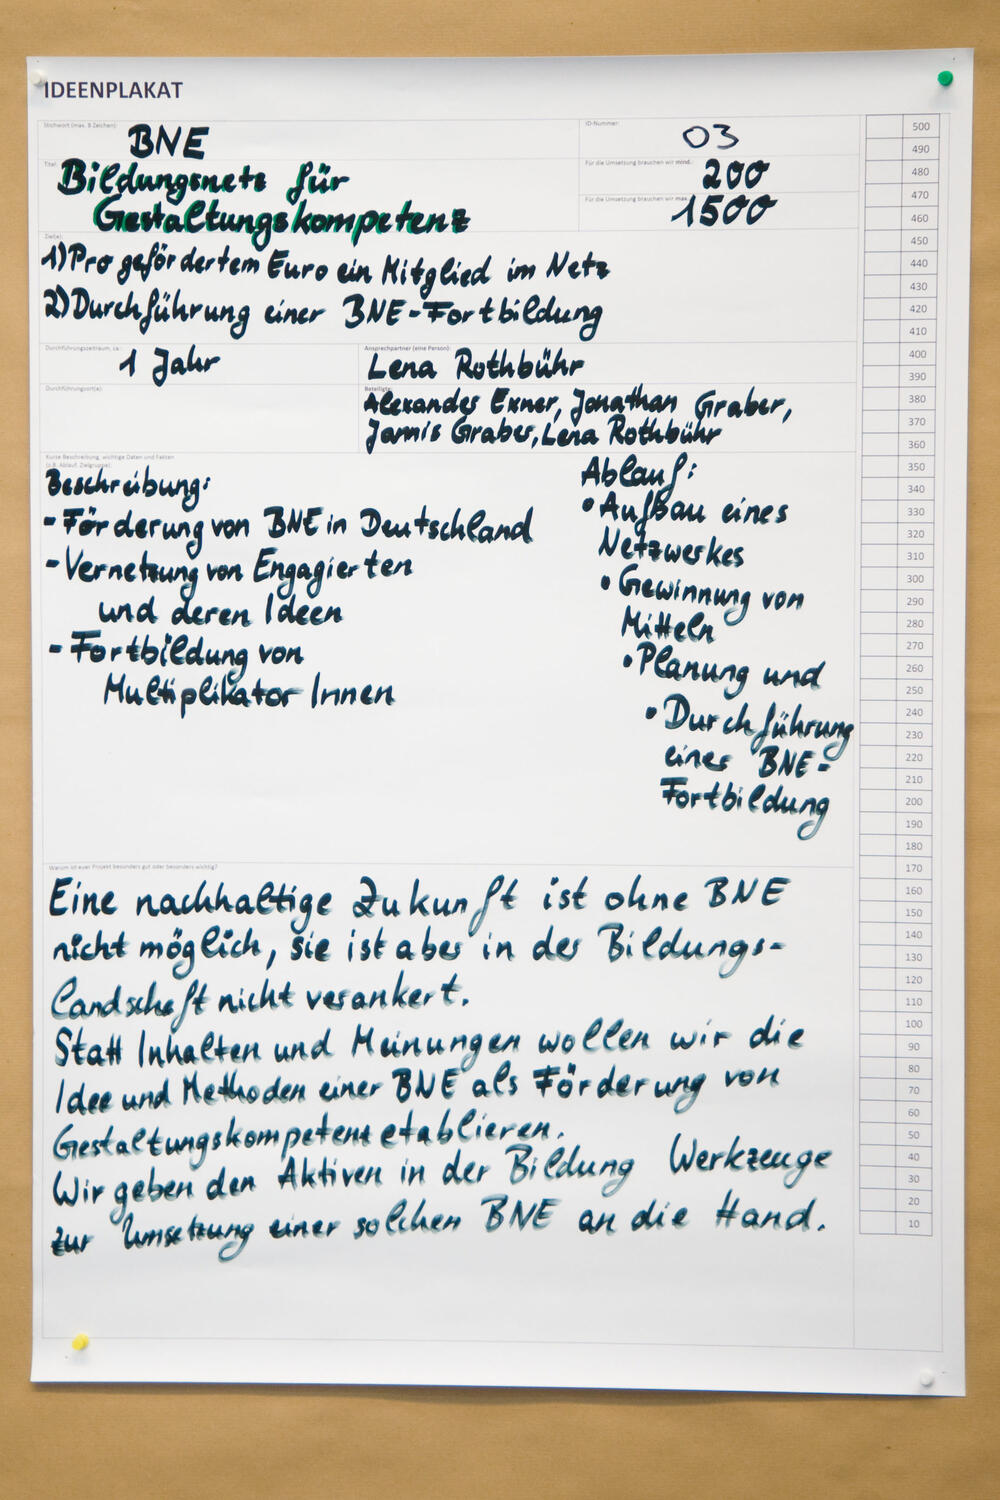 IDEENPLAKAT
Stichwort (max. 8 Zeichen):
BNE
ID-Nummer:
03
Titel:
Bildungsnetz für
Gestaltungskompetenz
Für die Umsetzung brauchen wir mind.:
200
Für die Umsetzung brauchen wir max.
1500
Ziel(e):
1) Pro gefördertem Euro ein Mitglied im Netz
2) Durchführung einer BNE-Fortbildung
Durchführungszeitraum, ca.:
1 Jahr
Ansprechpartner (eine Person):
Lena Rothbühr
Durchführungsort(e):
Beteiligte:
Alexander Exner, Jonathan Graber,
Jannis Graber, Lena Rothbühr
Kurze Beschreibung, wichtige Daten und Fakten
(z.B. Ablauf, Zielgruppe):
Beschreibung:
- Förderung von BNE in Deutschland
- Vernetzung von Engagierten
und deren Ideen
- Fortbildung von
MultiplikatorInnen
Ablauf:
• Aufbau eines
Netzwerkes
• Gewinnung von
Mitteln
• Planung und
• Durchführung
einer BNE-
Fortbildung
Warum ist euer Projekt besonders gut oder besonders wichtig?
Eine nachhaltige Zukunft ist ohne BNE
nicht möglich, sie ist aber in der Bildungs-
landschaft nicht verankert.
Statt Inhalten und Meinungen wollen wir die
Idee und Methoden einer BNE als Förderung von
Gestaltungskompetenz etablieren.
Wir geben den Aktiven in der Bildung Werkzeuge
zur Umsetzung einer solchen BNE an die Hand.
500
490
480
470
460
450
440
430
420
410
400
390
380
370
360
350
340
330
320
310
300
290
280
270
260
250
240
230
220
210
200
190
180
170
160
150
140
130
120
110
100
90
80
70
60
50
40
30
20
10